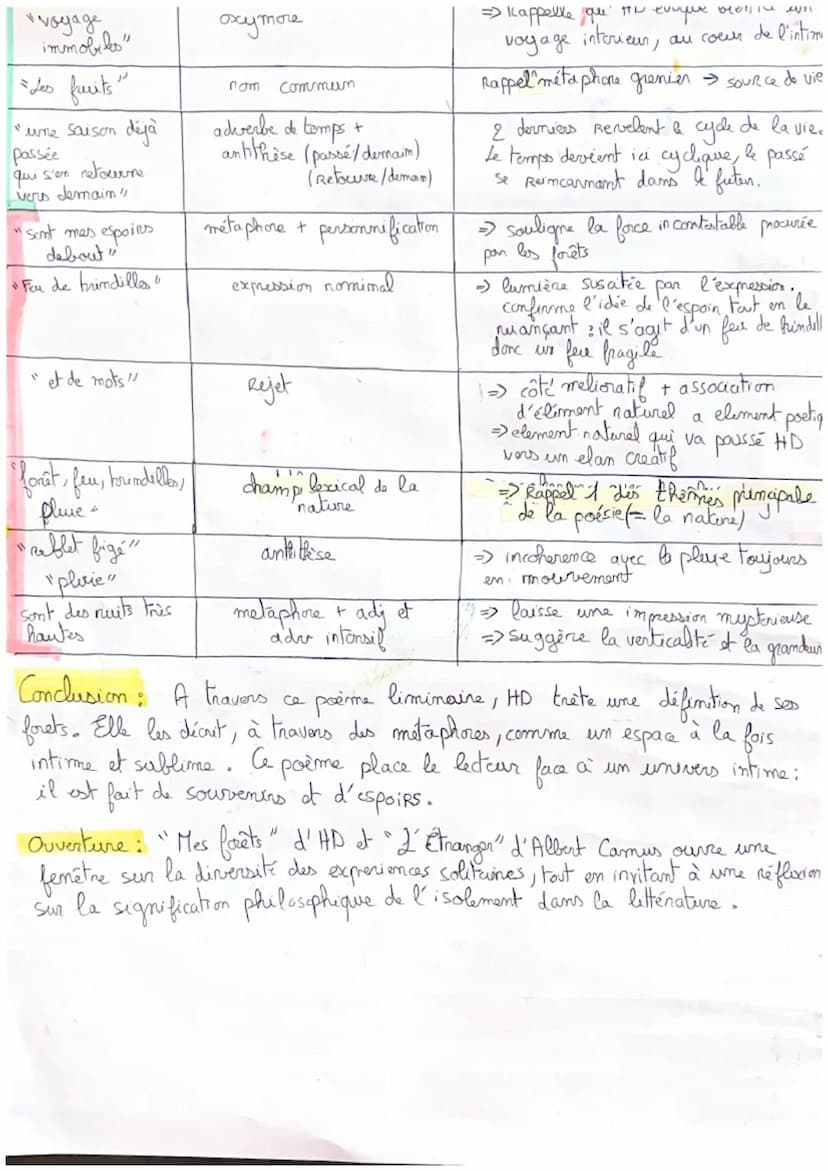 "voyage oxymore => Rappelle qu' HD évoque bien ici un
immobiles" voyage interieur, au coeur de l'intim
"Les fruits" nom commun Rappel métaphore grenier → source de vie
"une saison déjà adverbe de temps + 2 derniers revelent le cycle de la vie.
passée antithèse (passé/demain) Le temps devient ici cyclique, le passé
qui s'en retourne (Retourne/demain) se reincarnant dans le futur.
vers demain"
"sont mes espoirs métaphore + personnification => souligne la force incontestable procurée
debout" par les forêts
"Feu de brindilles" expression nominal => lumière suscitée par l'expression.
confirme l'idée de l'espoir tout en le
nuançant : il s'agit d'un feu de brindill
donc un feu fragile
"et de mots" Rejet => côté melioratif + association
d'élément naturel a element poetiq
=> element naturel qui va poussé HD
vers un elan creatif
"forêt, feu, brindilles, champ lexical de la => Rappel 1 des thèmes principale
pluie" nature de la poésie (= la nature)
"reflet figé" antithèse => incoherence avec la pluie toujours
"pluie" en mouvement
sont des nuits très metaphore + adj et => laisse une impression mysterieuse
hautes adv intensif => Suggère la verticalité et la grandeur
Conclusion : A travers ce poème liminaire, HD trète une définition de ses
forets. Elle les décrit, à travers des métaphores, comme un espace à la fois
intime et sublime. Ce poème place le lecteur face à un univers intime :
il est fait de souvenirs et d'espoirs.
Ouverture : "Mes forêts" d'HD et "L'Étranger" d'Albert Camus ouvre une
fenêtre sur la diversité des expreriences solitaires, tout en invitant à une réflexion
sur la signification philosophique de l'isolement dans la littérature.